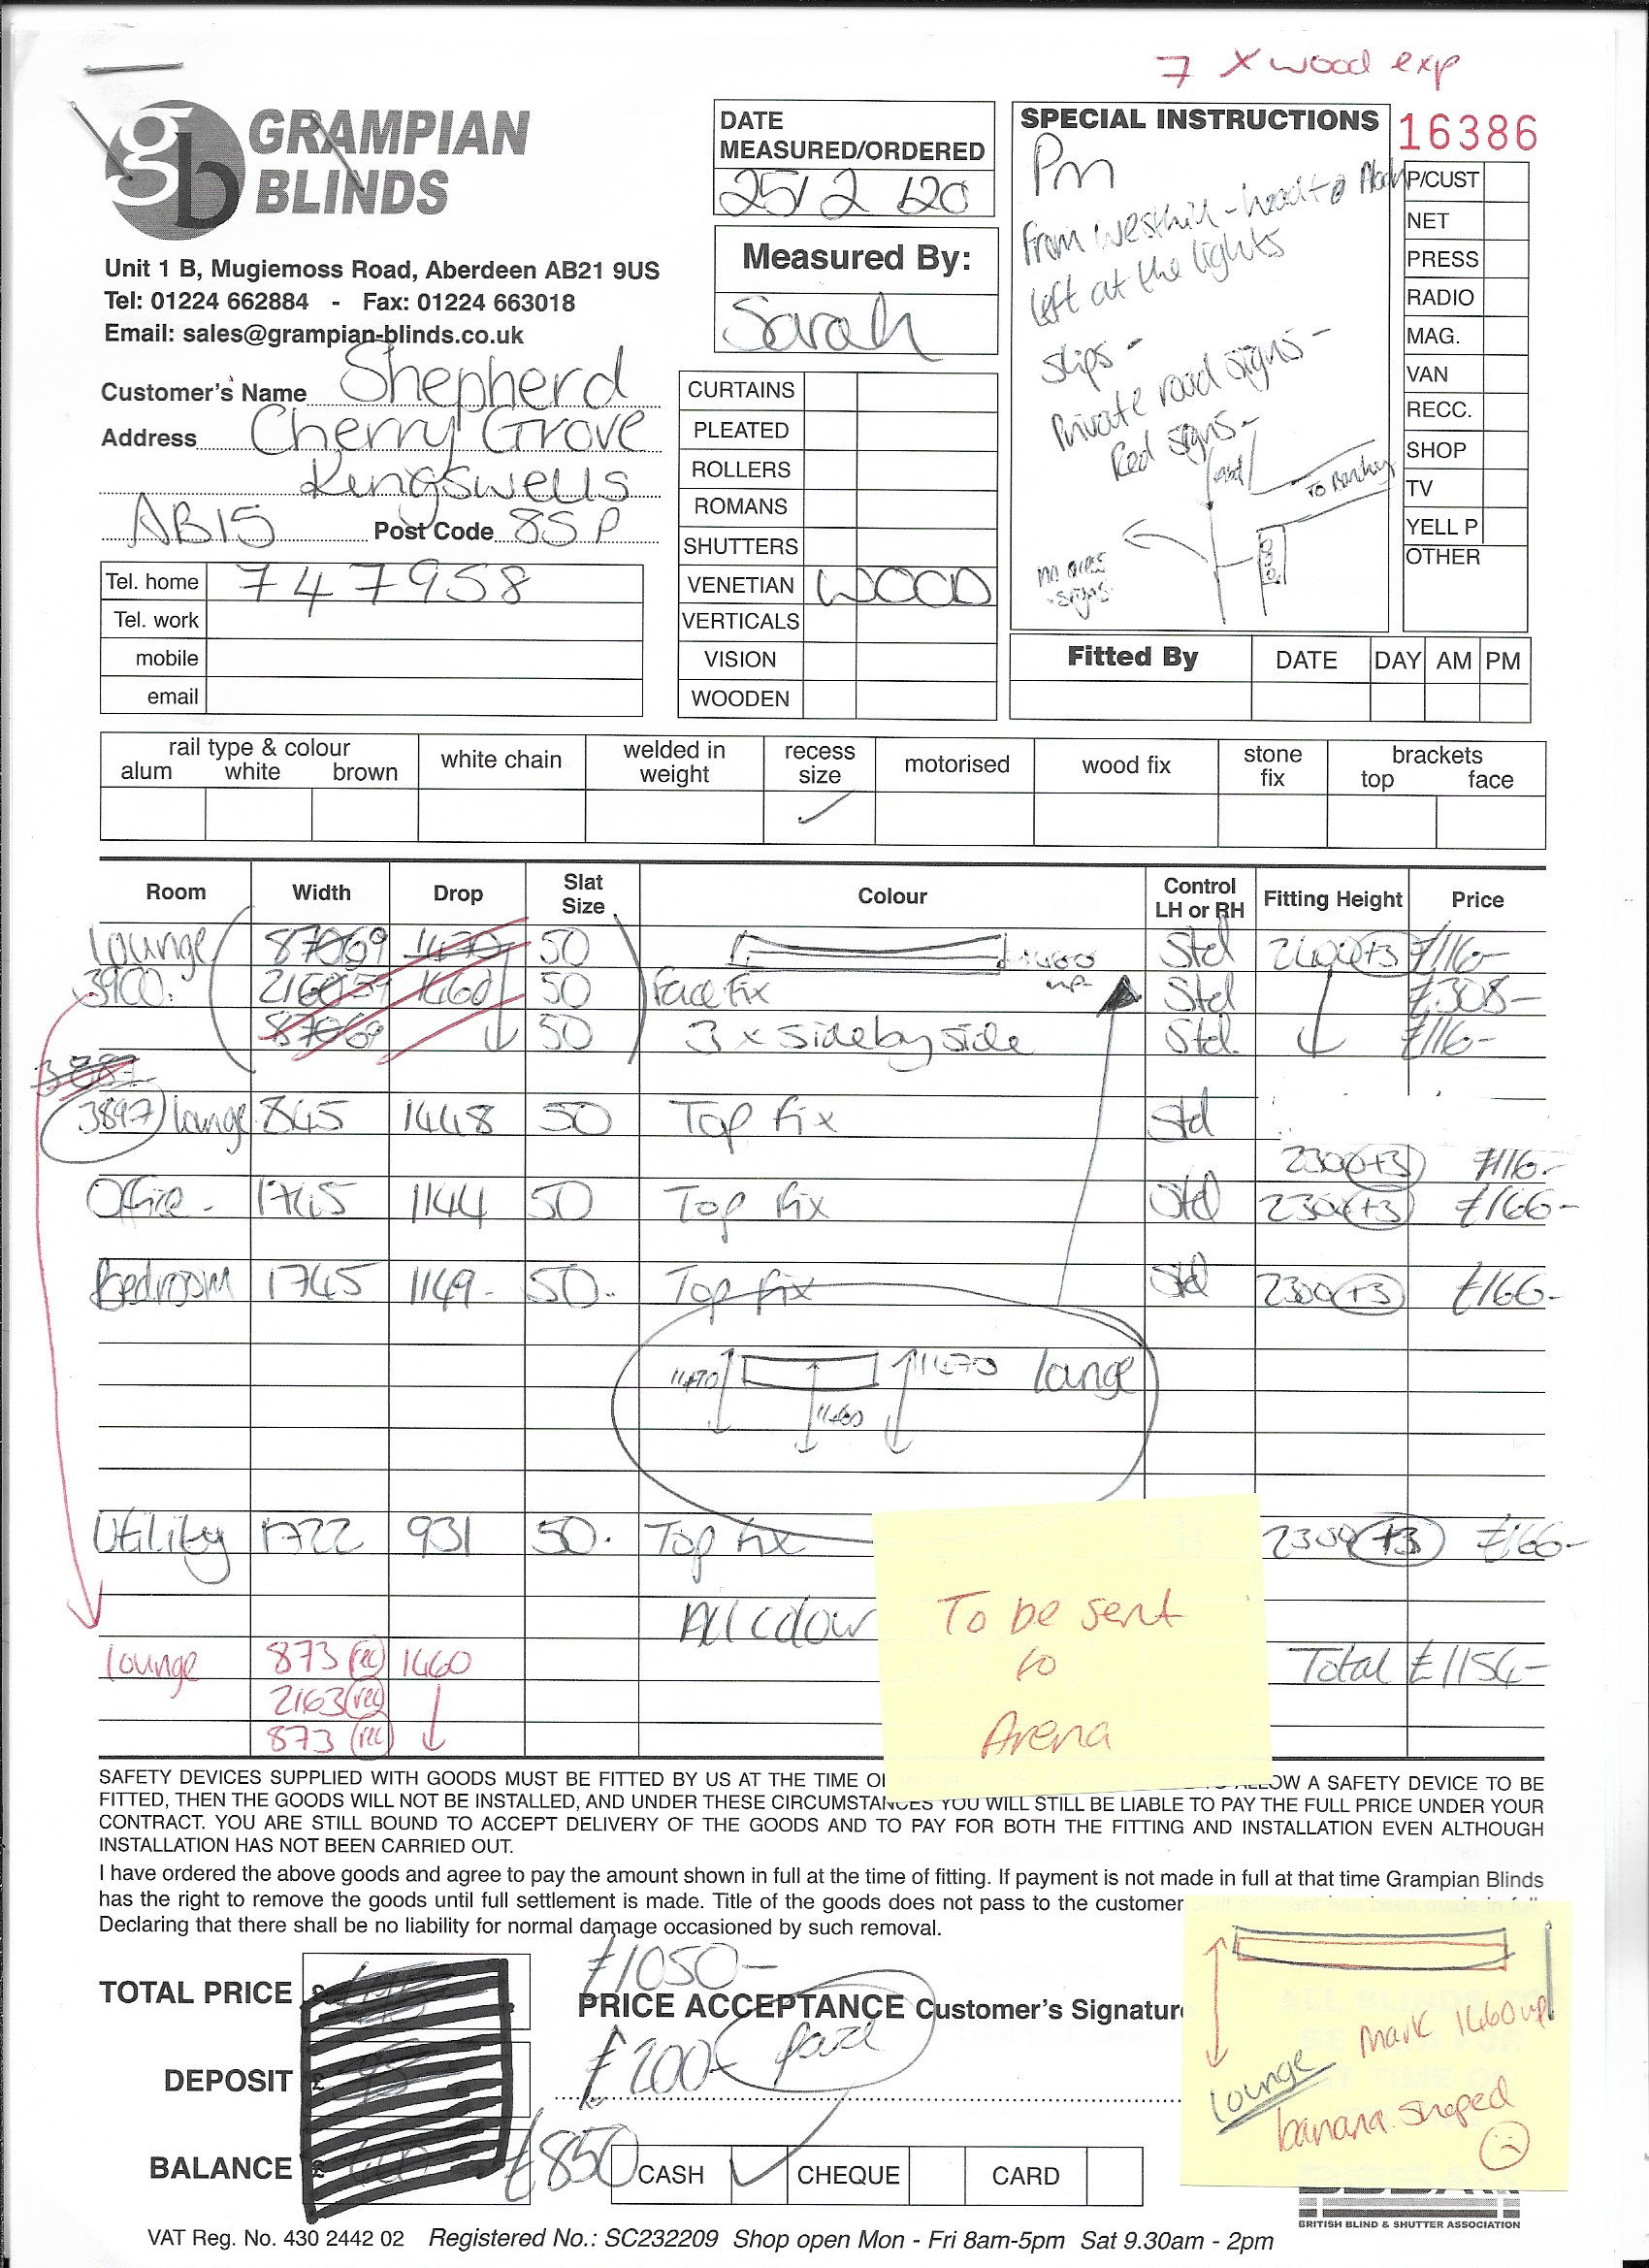 7 x wood exp
GRAMPIAN
BLINDS
gb
Unit 1 B, Mugiemoss Road, Aberdeen AB21 9US
Tel: 01224 662884 - Fax: 01224 663018
Email: sales@grampian-blinds.co.uk
DATE
MEASURED/ORDERED
25/2/20
Measured By:
Sarah
SPECIAL INSTRUCTIONS
Pm
From Westhill - head to
left at the lights
slips -
Private road signs -
Red signs -
signs
16386
P/CUST
NET
PRESS
RADIO
MAG.
VAN
RECC.
SHOP
TV
YELL P
OTHER
Customer's Name Shepherd
Address Cherry Grove
Kingswells
AB15 Post Code 8SP
Tel. home 747958
Tel. work
mobile
email
CURTAINS
PLEATED
ROLLERS
ROMANS
SHUTTERS
VENETIAN WOOD
VERTICALS
VISION
WOODEN
Fitted By DATE DAY AM PM
rail type & colour
alum white brown
white chain
welded in
weight
recess
size
✓
motorised
wood fix
stone
fix
brackets
top face
Room Width Drop Slat Size Colour Control LH or RH Fitting Height Price
Lounge 1470 50 1460 up Std 2400 +3 £116-
3900. 1460 50 Face fix Std £308-
50 3 x side by side Std. £116-
3897 lounge 845 1448 50 Top fix Std 2300 +3 £116-
Office - 1745 1144 50 Top fix Std 2300 +3 £166-
Bedroom 1745 1149- 50. Top fix Std 2300 +3 £166-
1470 1470 lounge
1460
Utility 1722 931 50. Top fix 2300 +3 £166-
All colour
lounge 873 (rec) 1460 Total £1154-
2163 (rec)
873 (rec)
To be sent
to
Arena
SAFETY DEVICES SUPPLIED WITH GOODS MUST BE FITTED BY US AT THE TIME OF ALLOW A SAFETY DEVICE TO BE
FITTED, THEN THE GOODS WILL NOT BE INSTALLED, AND UNDER THESE CIRCUMSTANCES YOU WILL STILL BE LIABLE TO PAY THE FULL PRICE UNDER YOUR
CONTRACT. YOU ARE STILL BOUND TO ACCEPT DELIVERY OF THE GOODS AND TO PAY FOR BOTH THE FITTING AND INSTALLATION EVEN ALTHOUGH
INSTALLATION HAS NOT BEEN CARRIED OUT.
I have ordered the above goods and agree to pay the amount shown in full at the time of fitting. If payment is not made in full at that time Grampian Blinds
has the right to remove the goods until full settlement is made. Title of the goods does not pass to the customer until payment has been made in full.
Declaring that there shall be no liability for normal damage occasioned by such removal.
TOTAL PRICE £
£1050-
PRICE ACCEPTANCE Customer's Signature
DEPOSIT £
£200- paid
BALANCE £
£850
CASH ✓ CHEQUE CARD
mark 1460 up
lounge
banana shaped
BRITISH BLIND & SHUTTER ASSOCIATION
VAT Reg. No. 430 2442 02 Registered No.: SC232209 Shop open Mon - Fri 8am-5pm Sat 9.30am - 2pm